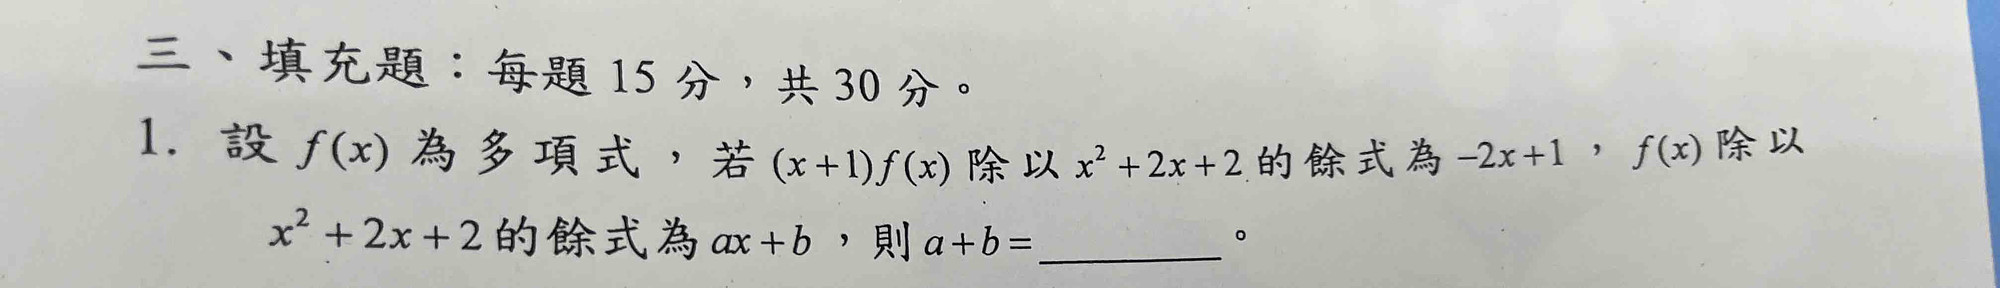 三、填充題：每題 15 分，共 30 分。
1. 設 f(x) 為多項式，若 (x+1)f(x) 除以 x²+2x+2 的餘式為 -2x+1，f(x) 除以
x²+2x+2 的餘式為 ax+b，則 a+b=________。